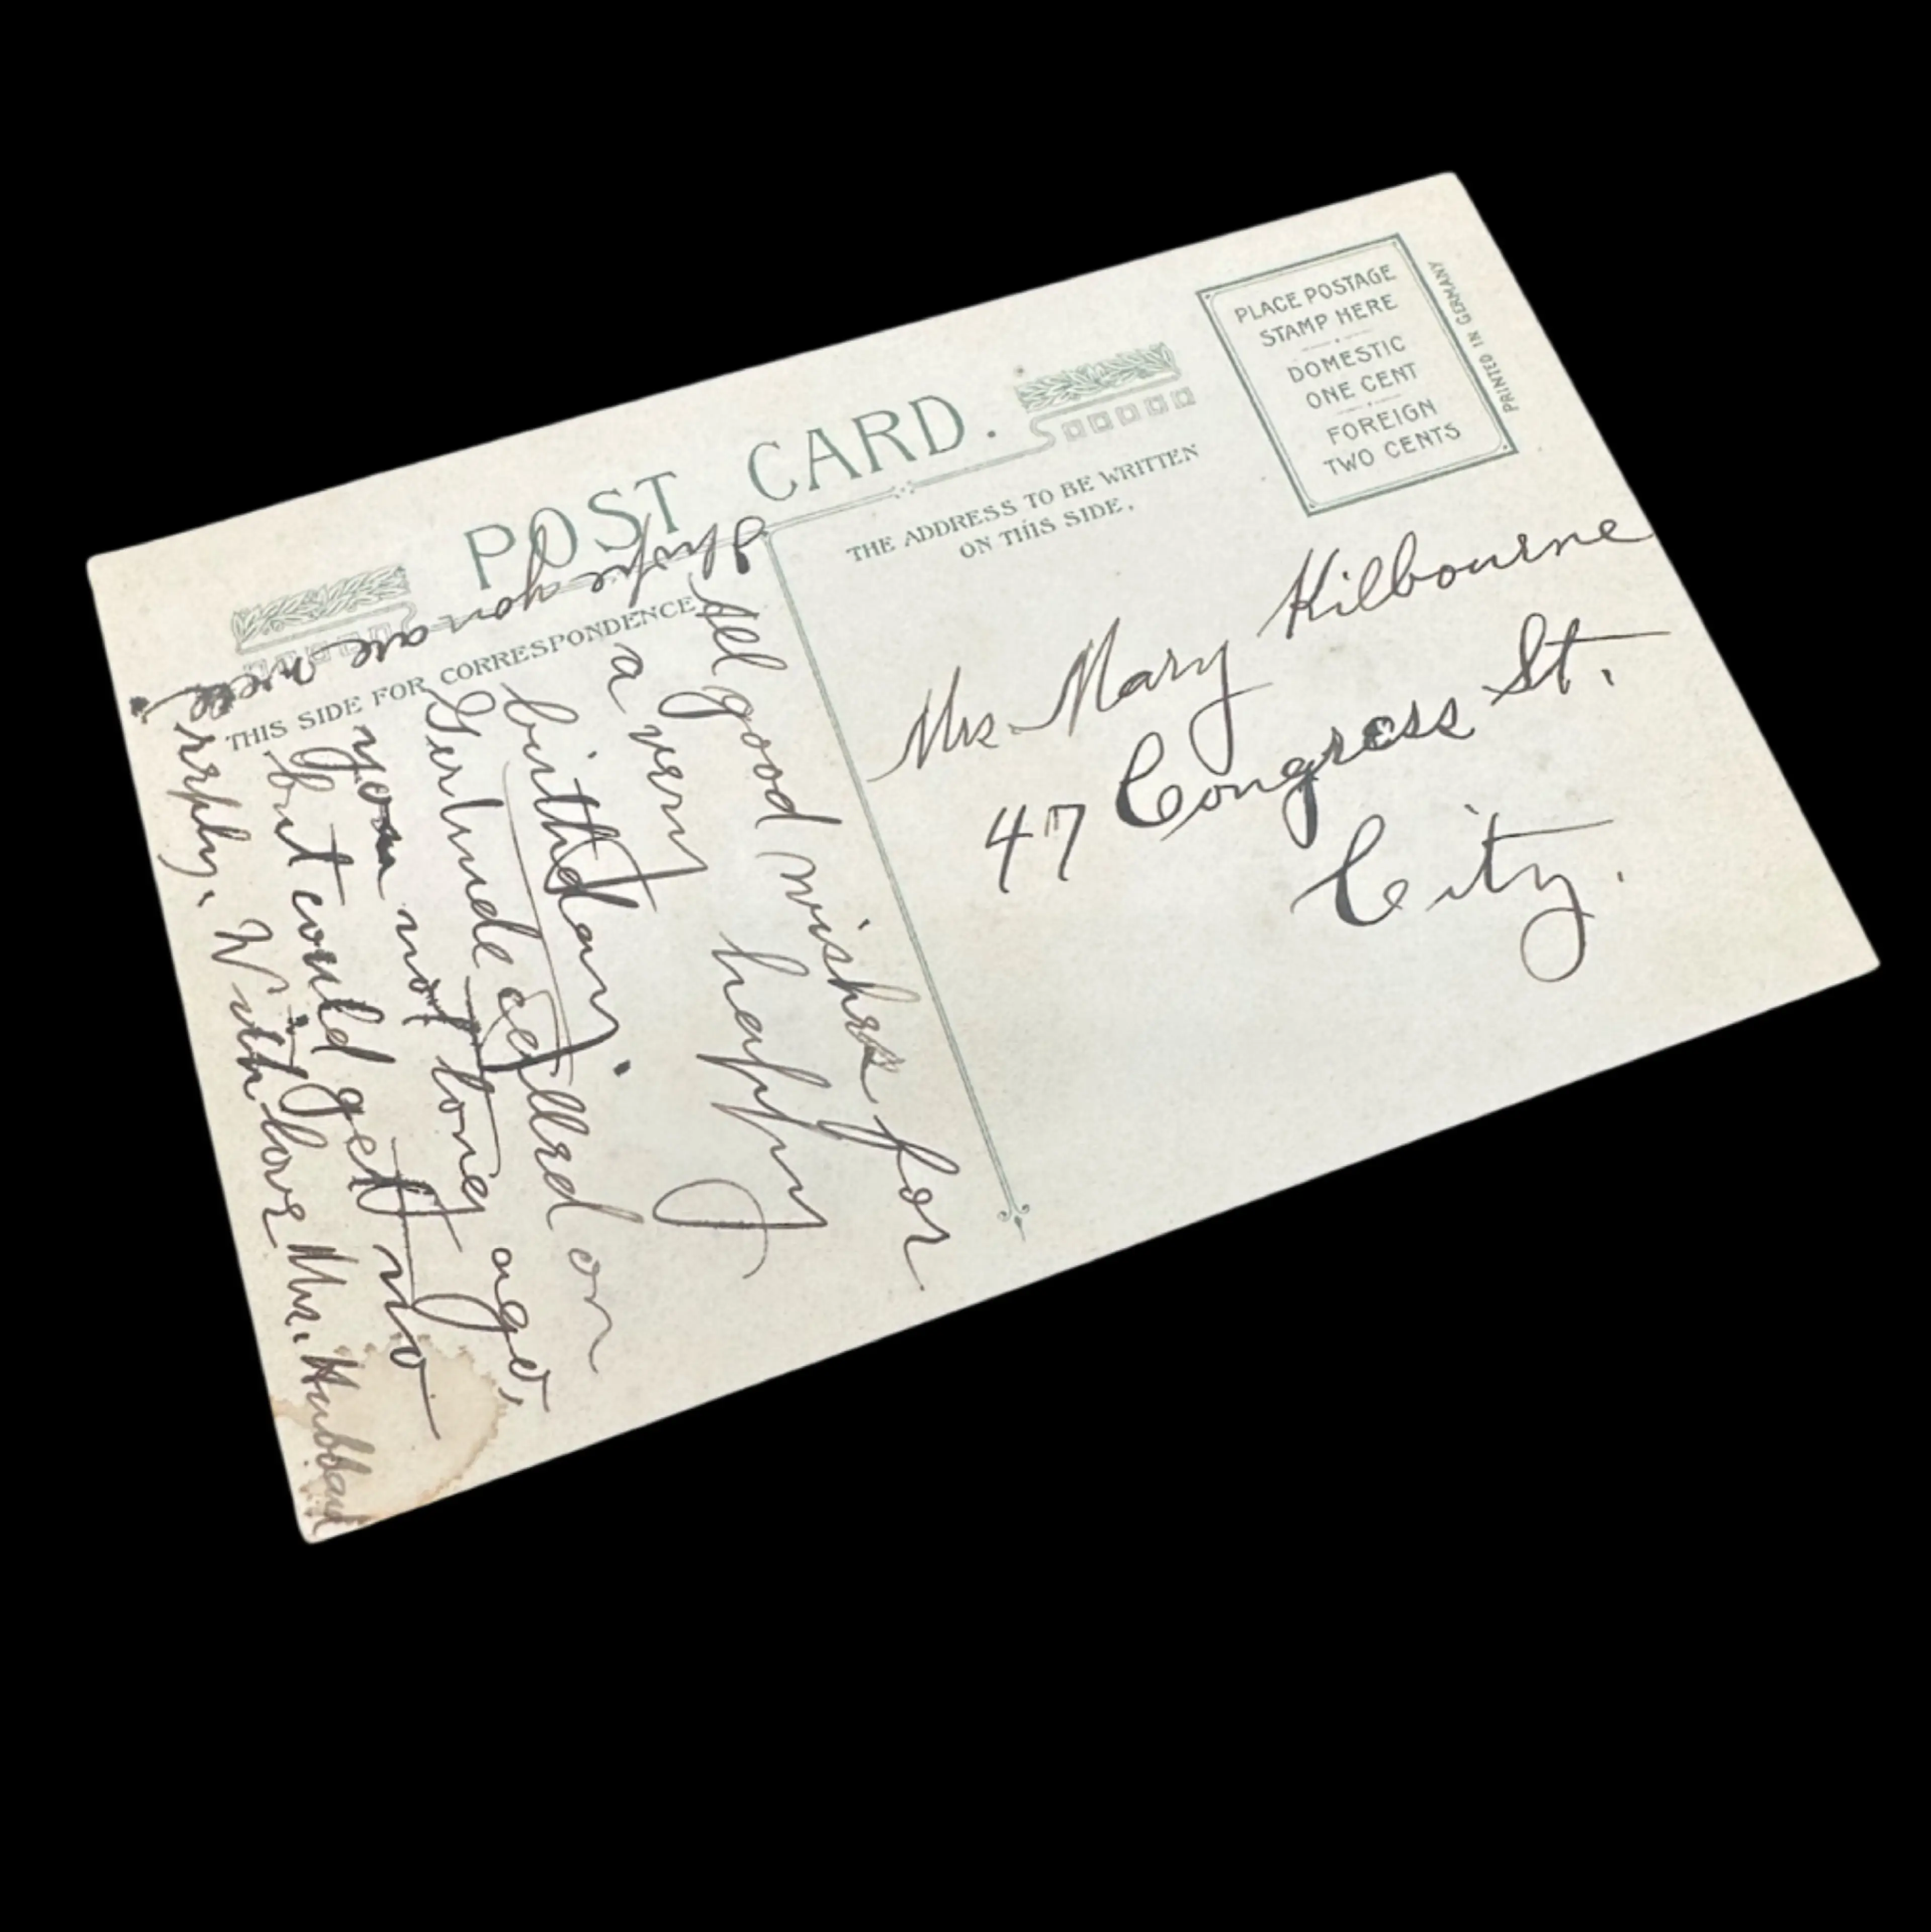 POST CARD.
THIS SIDE FOR CORRESPONDENCE
THE ADDRESS TO BE WRITTEN
ON THIS SIDE.
PLACE POSTAGE
STAMP HERE
DOMESTIC
ONE CENT
FOREIGN
TWO CENTS
PRINTED IN GERMANY
Mrs. Mary Kilbourne
47 Congress St.
City.
All good wishes for
a very happy
birthday.
Gertrude called on
you not long ago,
but could get no
reply. With love Mrs. Hubbard
I hope you are well.